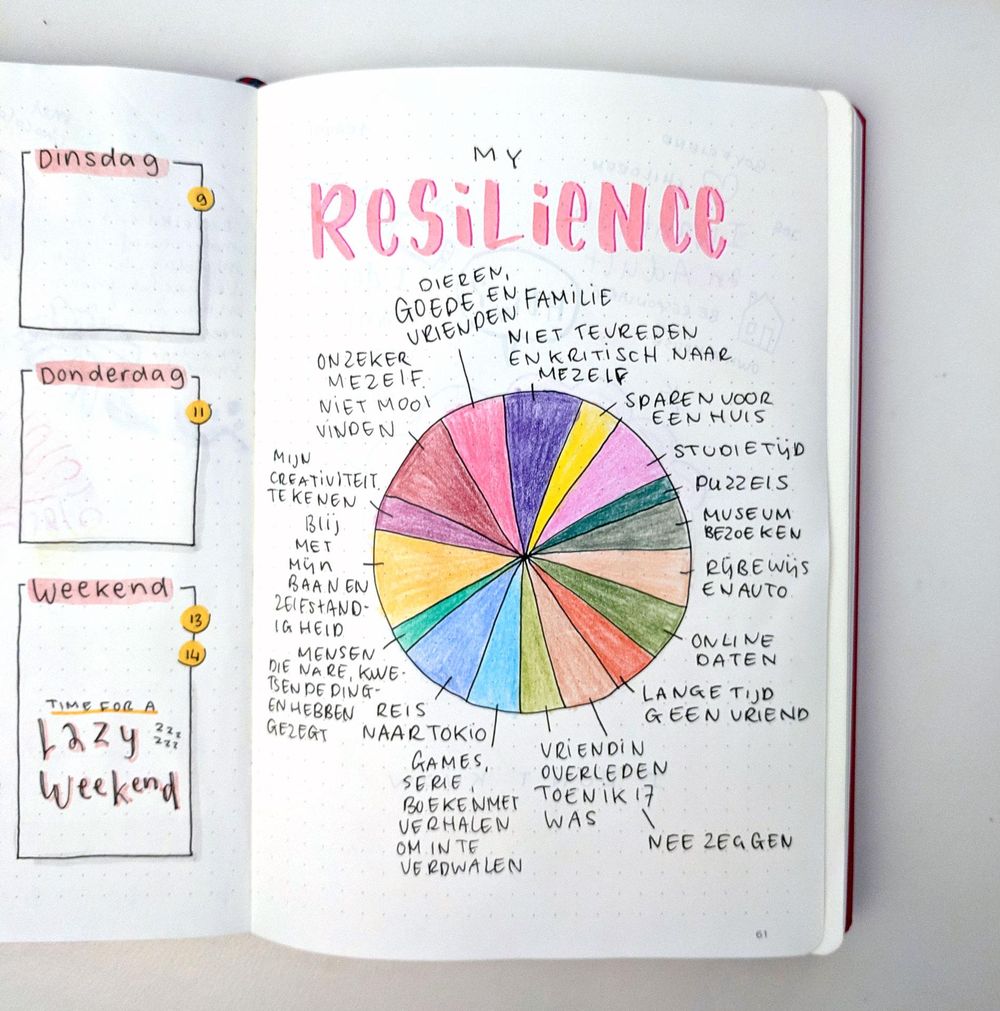 Dinsdag
9
Donderdag
11
Weekend
13
14
TIME FOR A
Lazy
zzz
zzz
Weekend
MY
RESILIENCE
DIEREN,
GOEDE EN
VRIENDEN
FAMILIE
NIET TEVREDEN
EN KRITISCH NAAR
MEZELF
SPAREN VOOR
EEN HUIS
STUDIETIJD
PUZZELS
MUSEUM
BEZOEKEN
RIJBEWIJS
EN AUTO
ONLINE
DATEN
LANGE TIJD
GEEN VRIEND
NEE ZEGGEN
VRIENDIN
OVERLEDEN
TOEN IK 17
WAS
GAMES,
SERIE,
BOEKEN MET
VERHALEN
OM IN TE
VERDWALEN
REIS
NAAR TOKIO
MENSEN
DIE NARE, KWE-
TSENDE DING-
EN HEBBEN
GEZEGT
BLIJ
MET
MIJN
BAAN EN
ZELFSTAND-
IGHEID
MIJN
CREATIVITEIT,
TEKENEN
ONZEKER
MEZELF
NIET MOOI
VINDEN
61